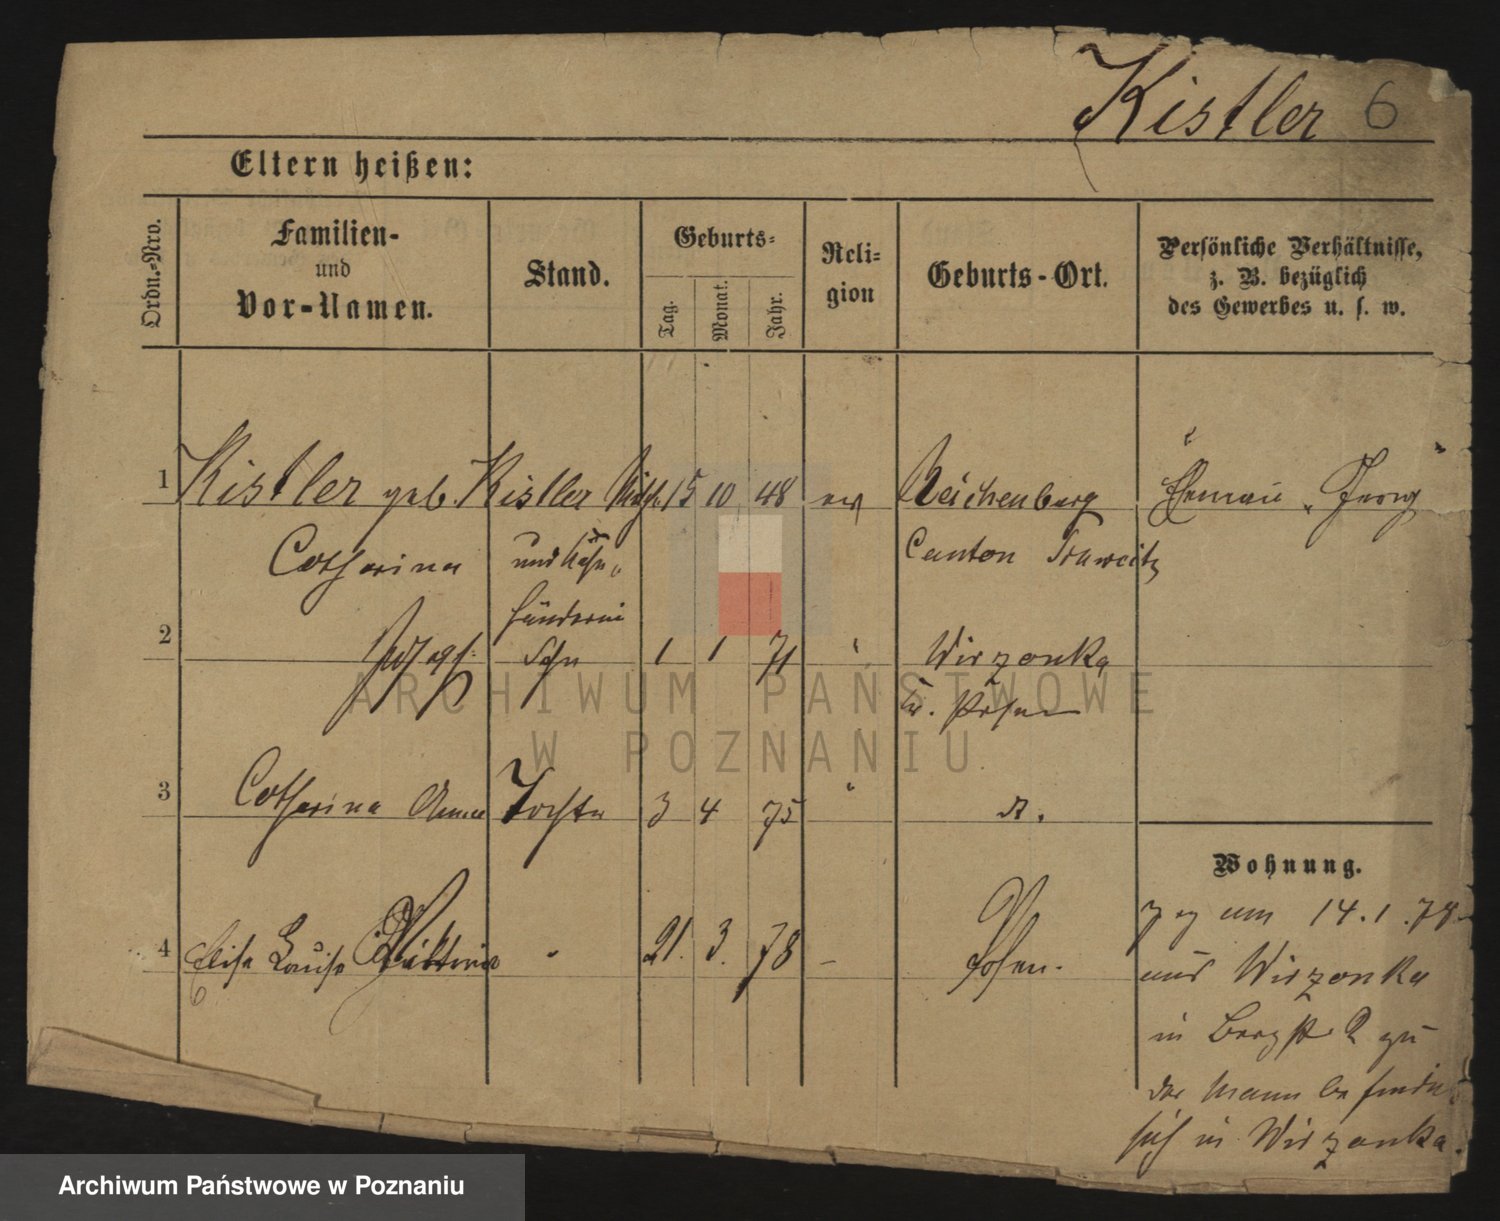 Kistler 6
Eltern heißen:
Ordn.-Nro.
Familien-
und
Vor-Namen.
Stand.
Geburts-
Tag.
Monat.
Jahr.
Reli-
gion
Geburts-Ort.
Persönliche Verhältnisse,
z. B. bezüglich
des Gewerbes u. s. w.
1 Kistler geb. Kistler Milch 15 10 48 ev Reichenberg Ehemann Georg
Catharina und Canton Schweitz
händlerin
2 Joseph Sohn 1 1 71 " Wirzonka
Kr. Posen
ARCHIWUM PAŃSTWOWE
W POZNANIU
3 Catharina Anna Tochter 3 4 75 " d.
Wohnung.
4 Elise Louise Viktoria " 21. 3. 78 – Posen.
zog am 14.1.78
aus Wirzonka
in Bergstr 2 zu
der Mann befindet
sich in Wirzonka.
Archiwum Państwowe w Poznaniu